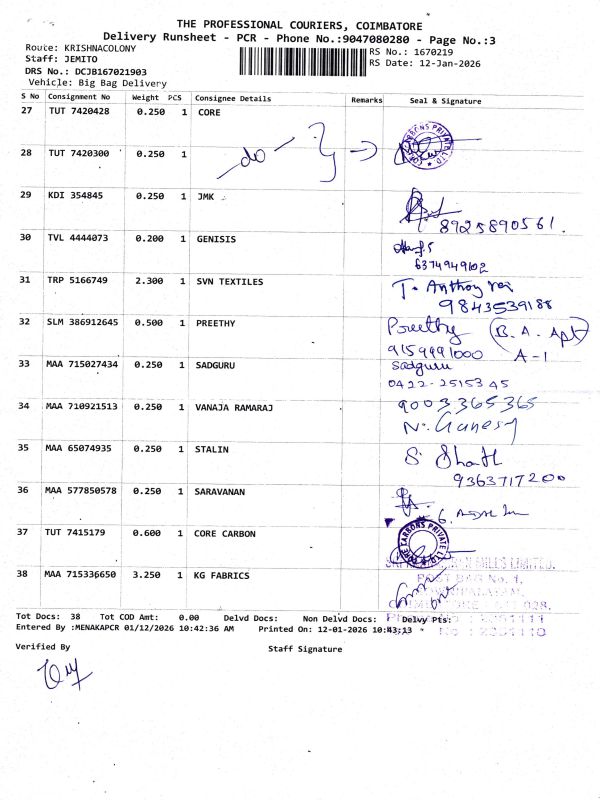 THE PROFESSIONAL COURIERS, COIMBATORE
Delivery Runsheet - PCR - Phone No.:9047080280 - Page No.:3
Route: KRISHNACOLONY
RS No.: 1670219
Staff: JEMITO
RS Date: 12-Jan-2026
DRS No.: DCJB167021903
Vehicle: Big Bag Delivery
S No Consignment No Weight PCS Consignee Details Remarks Seal & Signature
27 TUT 7420428 0.250 1 CORE
28 TUT 7420300 0.250 1 - do -
29 KDI 354845 0.250 1 JMK
8925890561.
30 TVL 4444073 0.200 1 GENISIS
6374949102
31 TRP 5166749 2.300 1 SVN TEXTILES T. Anthony
9843539188
32 SLM 386912645 0.500 1 PREETHY Preethy B.A. Apt
9159991000 A-1
33 MAA 715027434 0.250 1 SADGURU Sadguru
0422-2515345
34 MAA 710921513 0.250 1 VANAJA RAMARAJ 9003365365
N. Ganesh
35 MAA 65074935 0.250 1 STALIN S.
9363717200
36 MAA 577850578 0.250 1 SARAVANAN
37 TUT 7415179 0.600 1 CORE CARBON CORE CARBONS PRIVATE LTD.
MILLS LIMITED.
38 MAA 715336650 3.250 1 KG FABRICS
POST BAG No. 1,
Tot Docs: 38 Tot COD Amt: 0.00 Delvd Docs: Non Delvd Docs: Delvy Pts:
Entered By :MENAKAPCR 01/12/2026 10:42:36 AM Printed On: 12-01-2026 10:43:13
Verified By
Staff Signature